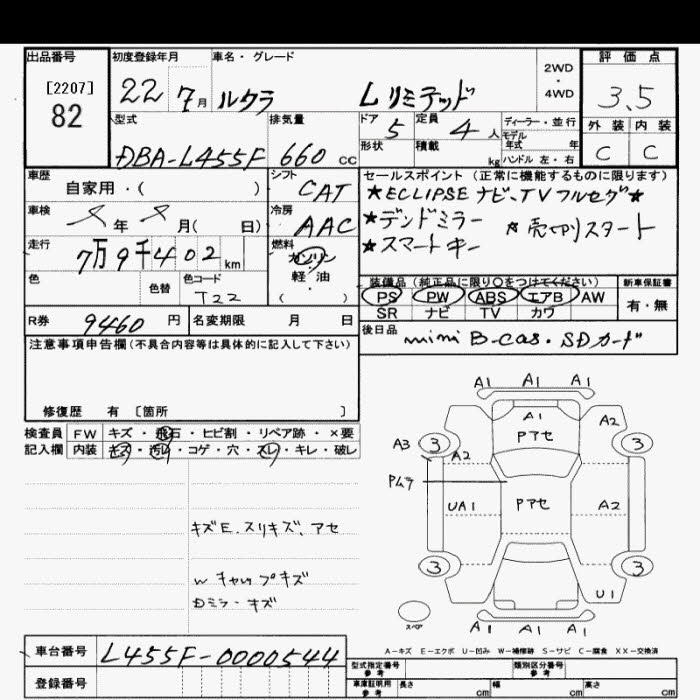 出品番号 初度登録年月 車名・グレード 2WD・4WD 評価点
[2207] 82 22年 7月 ルクラ Lリミテッド 3.5
型式 排気量 ドア 定員 ディーラー・並行 外装 内装
DBA-L455F 660cc 5 4人 モデル年式 年 C C
形状 積載 kg ハンドル 左・右
車歴 自家用・( ) シフト CAT セールスポイント (正常に機能するものに限ります)
★ECLIPSE ナビ、TV フルセグ★
車検 年 月( 日) 冷房 AAC
★デンドミラー ★売切りスタート
★スマートキー
走行 7万9千402km 燃料 ガソリン・軽油 ( )
色 色替 色コード T22
装備品 (純正品に限り○をつけてください) 新車保証書
PS PW ABS エアB AW 有・無
SR ナビ TV カワ
R券 9460円 名変期限 月 日
後日品 mini B-cas・SDカード
注意事項申告欄(不具合内容等は具体的に記入して下さい)
修復歴 有 [箇所 ]
検査員 FW キズ・飛石・ヒビ割・リペア跡・×要
記入欄 内装 キズ・汚レ・コゲ・穴・スレ・キレ・破レ
キズE.スリキズ、アセ
W キャップキズ
Dミラ・キズ
A1 A1 A1
A1
Pアセ A2
A3 3 3
A2
Pムラ
UA1 Pアセ A2
3 3
U1
スペア A1 A1 A1
A-キズ E-エクボ U-凹み W-補修跡 S-サビ C-腐食 XX-交換済
車台番号 L455F-0000544
型式指定番号 参考 類別区分番号 参考
登録番号
車庫証明用 参考 長さ cm 幅 cm 高さ cm